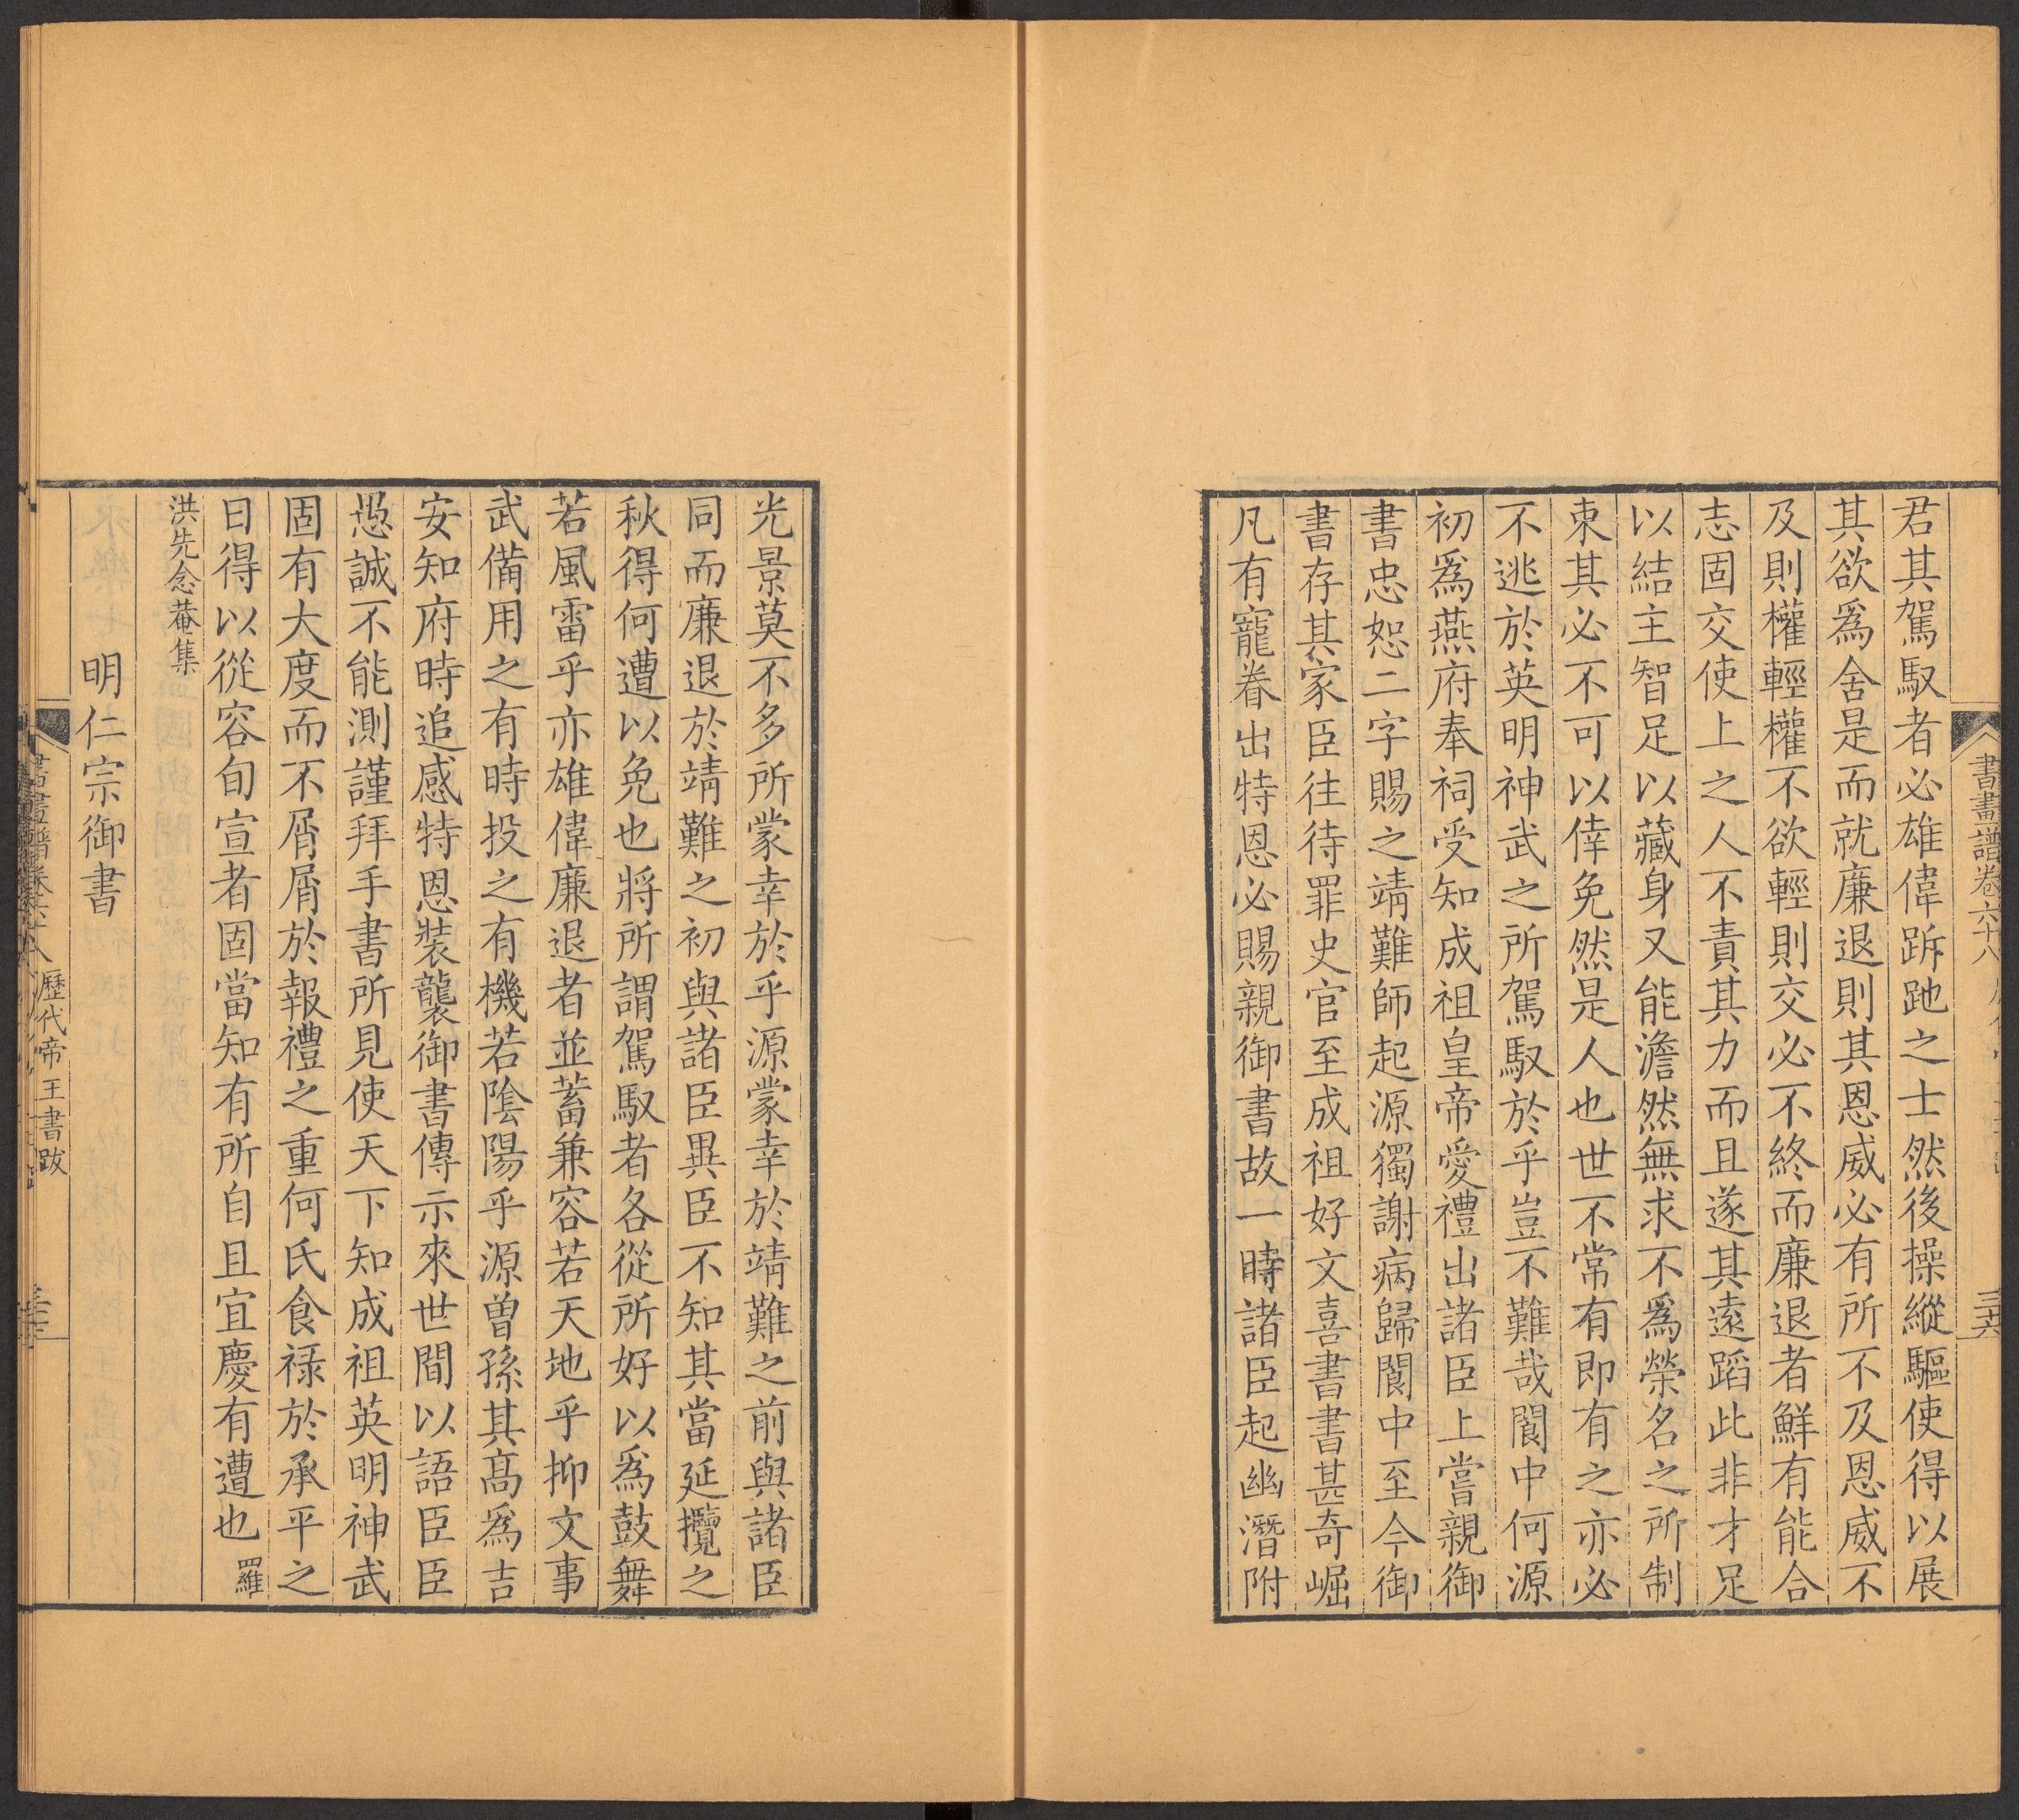 書畫譜卷六十八
君其駕馭者必雄偉跅跎之士然後操縱驅使得以展
其欲爲舍是而就廉退則其恩威必有所不及恩威不
及則權輕權不欲輕則交必不終而廉退者鮮有能合
志固交使上之人不責其力而且遂其遠蹈此非才足
以結主智足以藏身又能澹然無求不爲榮名之所制
束其必不可以倖免然是人也世不常有即有之亦必
不逃於英明神武之所駕馭於乎豈不難哉閬中何源
初爲燕府奉祠受知成祖皇帝愛禮出諸臣上嘗親御
書忠恕二字賜之靖難師起源獨謝病歸閬中至今御
書存其家臣往待罪史官至成祖好文喜書書甚奇崛
凡有寵眷出特恩必賜親御書故一時諸臣起幽潛附
光景莫不多所蒙幸於乎源蒙幸於靖難之前與諸臣
同而廉退於靖難之初與諸臣異臣不知其當延攬之
秋得何遭以免也將所謂駕馭者各從所好以爲鼓舞
若風雷乎亦雄偉廉退者並蓄兼容若天地乎抑文事
武備用之有時投之有機若陰陽乎源曾孫其髙爲吉
安知府時追感特恩裝襲御書傳示來世間以語臣臣
愚誠不能測謹拜手書所見使天下知成祖英明神武
固有大度而不屑屑於報禮之重何氏食祿於承平之
日得以從容旬宣者固當知有所自且宜慶有遭也 羅
洪先念菴集
明仁宗御書
歷代帝王書跋